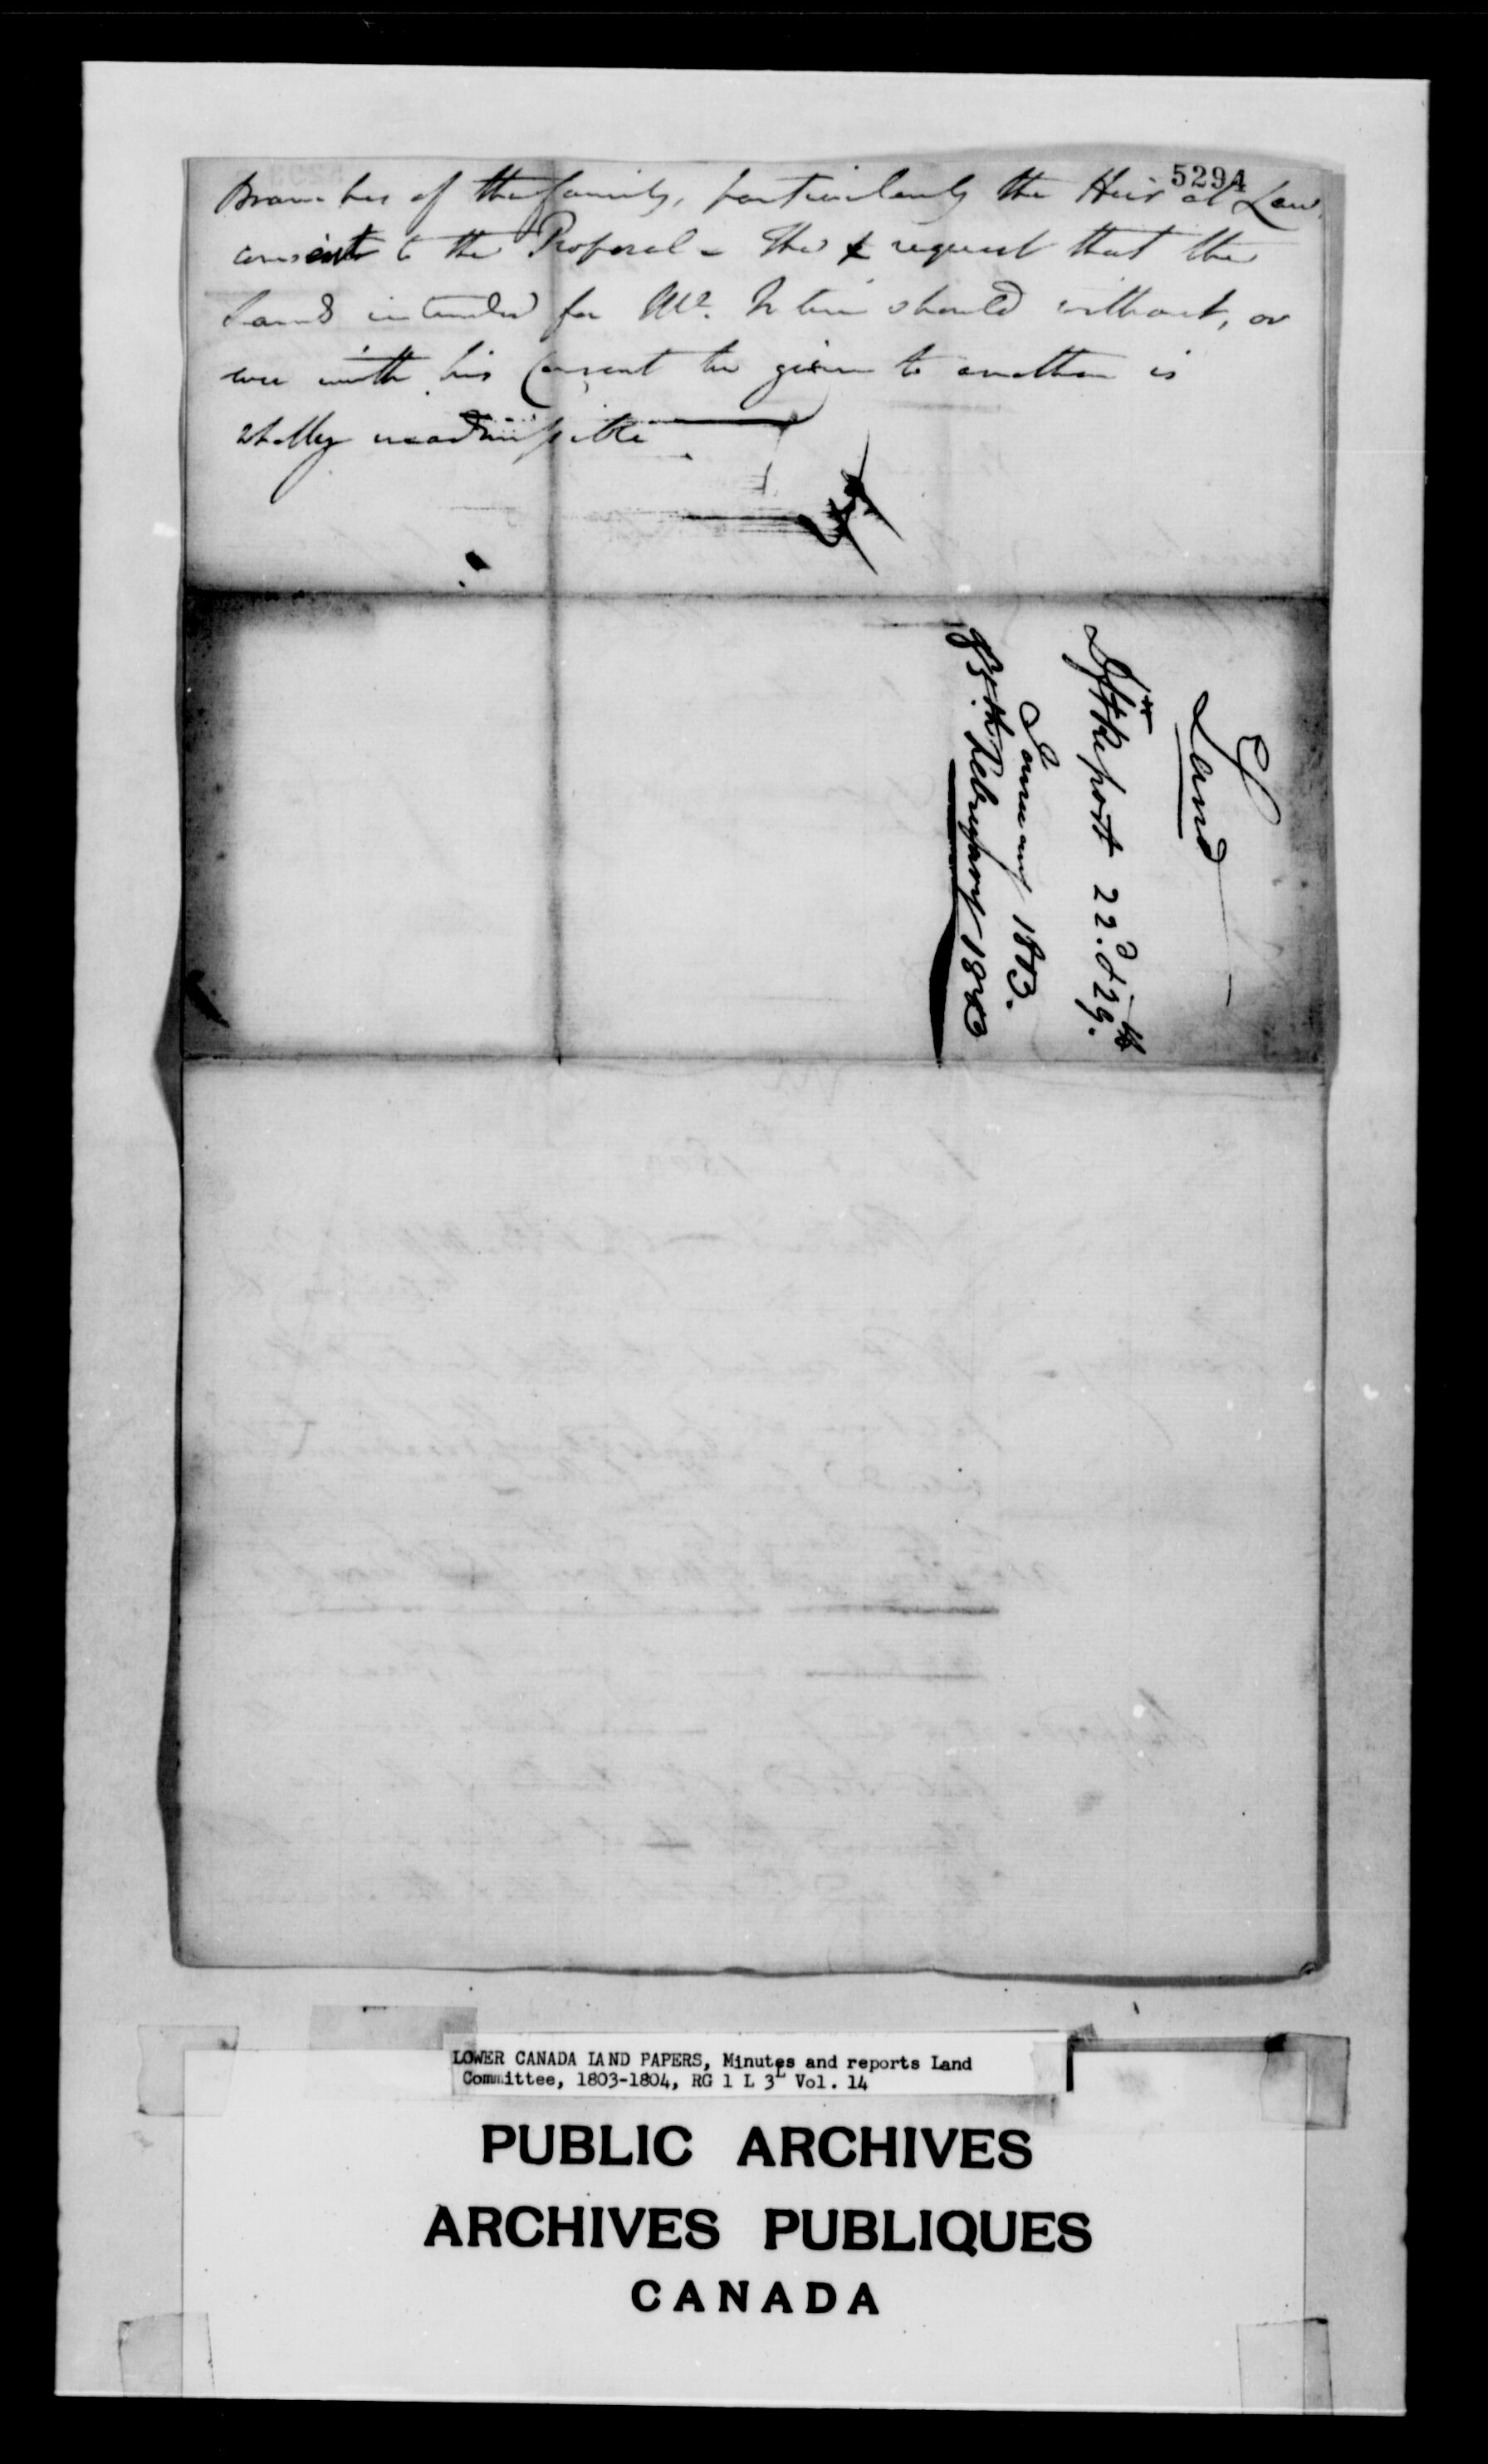 5294
Branches of the family, particularly the Heir at Law,
consent to the Proposal - The request that the
Lands intended for Mr. should without, or
even with his Consent be given to another is
wholly inadmissible
Land
Dft Report 22.d & 29.th
January 1803.
& 5.th February 1803
LOWER CANADA LAND PAPERS, Minutes and reports Land
Committee, 1803-1804, RG 1 L 3L Vol. 14
PUBLIC ARCHIVES
ARCHIVES PUBLIQUES
CANADA